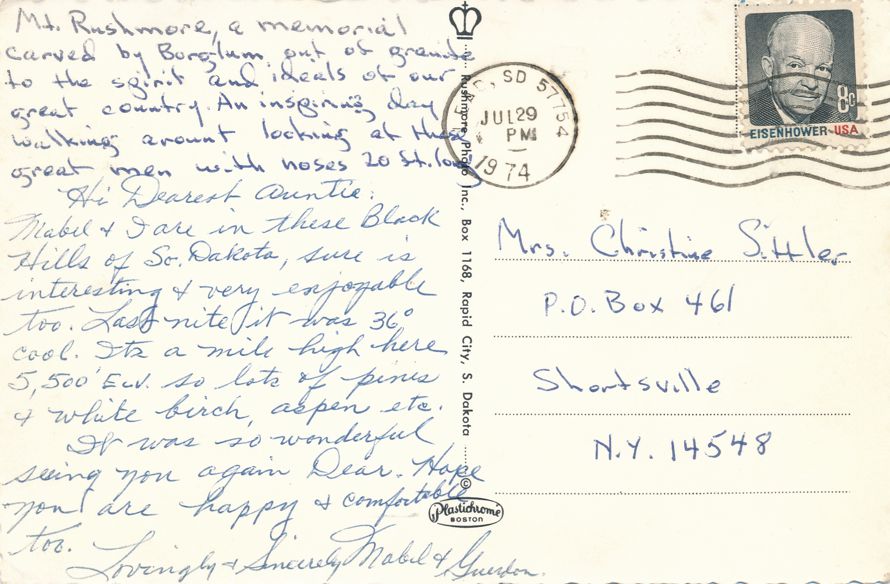 Mt. Rushmore, a memorial
carved by Borglum out of granite
to the spirit and ideals of our
great country. An inspiring day
walking arount looking at these
great men with noses 20 ft. long
Hi Dearest Auntie:
Mabel & I are in these Black
Hills of So. Dakota, sure is
interesting & very enjoyable
too. Last nite it was 36°
cool. Its a mile high here
5,500' Elev. so lots of pines
& white birch, aspen etc.
It was so wonderful
seeing you again Dear. Hope
you are happy & comfortable
too.
Lovingly & Sincerely Mabel & Guerdon.
Rushmore Photo Inc., Box 1168, Rapid City, S. Dakota
©
Plastichrome
BOSTON
SD 57754
JUL 29
PM
1974
8c
EISENHOWER·USA
Mrs. Christine Sittler
P.O. Box 461
Shortsville
N.Y. 14548